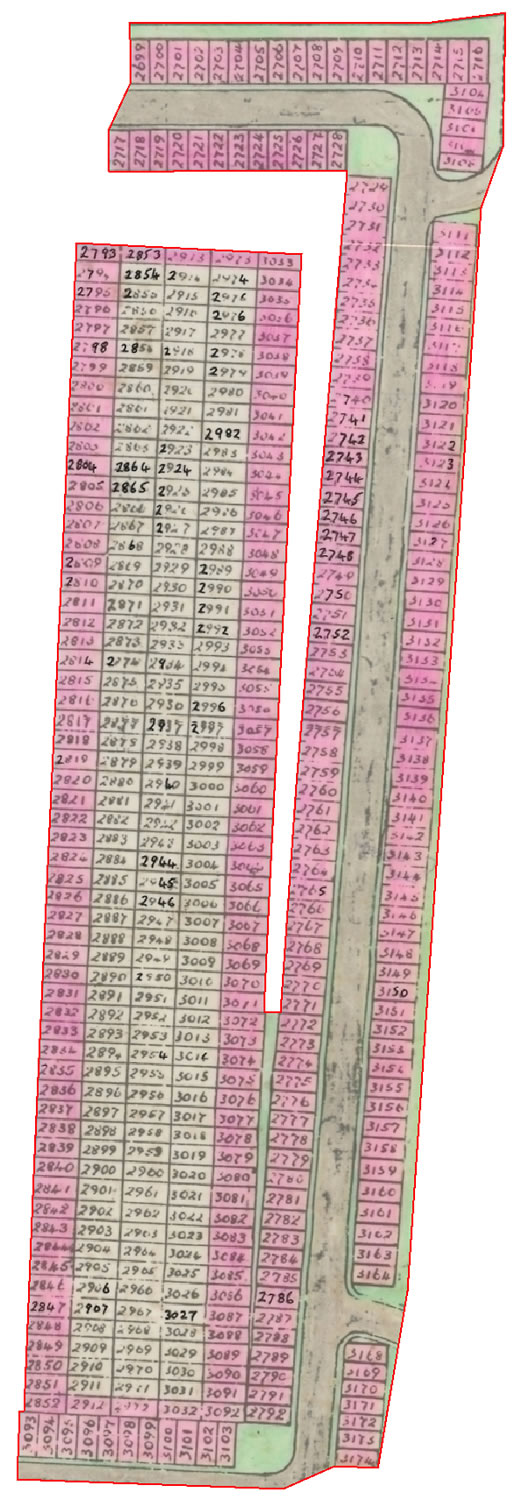 2699 2700 2701 2702 2703 2704 2705 2706 2707 2708 2709 2710 2711 2712 2713 2714 2715 2716
3104
3105
3106
3108
2717 2718 2719 2720 2721 2722 2723 2724 2725 2726 2727 2728
2729
2730
2731
2732
2733
2735
2736
2737
2738
2739
2740
2741
2742
2743
2744
2745
2746
2747
2748
2749
2750
2751
2752
2753
2754
2755
2756
2757
2758
2759
2760
2761
2762
2763
2764
2765
2766
2767
2768
2769
2770
2771
2772
2773
2774
2775
2776
2777
2778
2779
2780
2781
2782
2783
2784
2785
2786
2787
2788
2789
2790
2791
2792
3111
3112
3113
3114
3115
3120
3121
3122
3123
3126
3127
3128
3129
3130
3131
3132
3133
3135
3136
3137
3138
3139
3140
3141
3142
3143
3144
3145
3146
3147
3148
3149
3150
3151
3152
3153
3154
3155
3156
3157
3158
3159
3160
3161
3162
3163
3164
3168
3169
3170
3171
3172
3173
3174
2793 2853 2913 2973 3033
2794 2854 2914 2974 3034
2795 2855 2915 2975 3035
2796 2856 2916 2976 3036
2797 2857 2917 2977 3037
2798 2858 2918 2978 3038
2799 2859 2919 2979 3039
2800 2860 2920 2980 3040
2801 2861 2921 2981 3041
2802 2862 2922 2982 3042
2803 2863 2923 2983 3043
2804 2864 2924 2984 3044
2805 2865 2925 2985 3045
2806 2866 2926 2986 3046
2807 2867 2927 2987 3047
2808 2868 2928 2988 3048
2809 2869 2929 2989 3049
2810 2870 2930 2990 3050
2811 2871 2931 2991 3051
2812 2872 2932 2992 3052
2813 2873 2933 2993 3053
2814 2874 2934 2994 3054
2815 2875 2935 2995 3055
2816 2876 2936 2996 3056
2817 2877 2937 2997 3057
2818 2878 2938 2998 3058
2819 2879 2939 2999 3059
2820 2880 2960 3000 3060
2821 2881 2941 3001 3061
2822 2882 2942 3002 3062
2823 2883 2943 3003 3063
2824 2884 2944 3004 3064
2825 2885 2945 3005 3065
2826 2886 2946 3006 3066
2827 2887 2947 3007 3067
2828 2888 2948 3008 3068
2829 2889 2949 3009 3069
2830 2890 2950 3010 3070
2831 2891 2951 3011 3071
2832 2892 2952 3012 3072
2833 2893 2953 3013 3073
2834 2894 2954 3014 3074
2835 2895 2955 3015 3075
2836 2896 2956 3016 3076
2837 2897 2957 3017 3077
2838 2898 2958 3018 3078
2839 2899 2959 3019 3079
2840 2900 2960 3020 3080
2841 2901 2961 3021 3081
2842 2902 2962 3022 3082
2843 2903 2963 3023 3083
2844 2904 2964 3024 3084
2845 2905 2965 3025 3085
2846 2906 2966 3026 3086
2847 2907 2967 3027 3087
2848 2908 2968 3028 3088
2849 2909 2969 3029 3089
2850 2910 2970 3030 3090
2851 2911 2971 3031 3091
2852 2912 3032 3092
3093 3094 3095 3096 3097 3098 3099 3100 3101 3102 3103